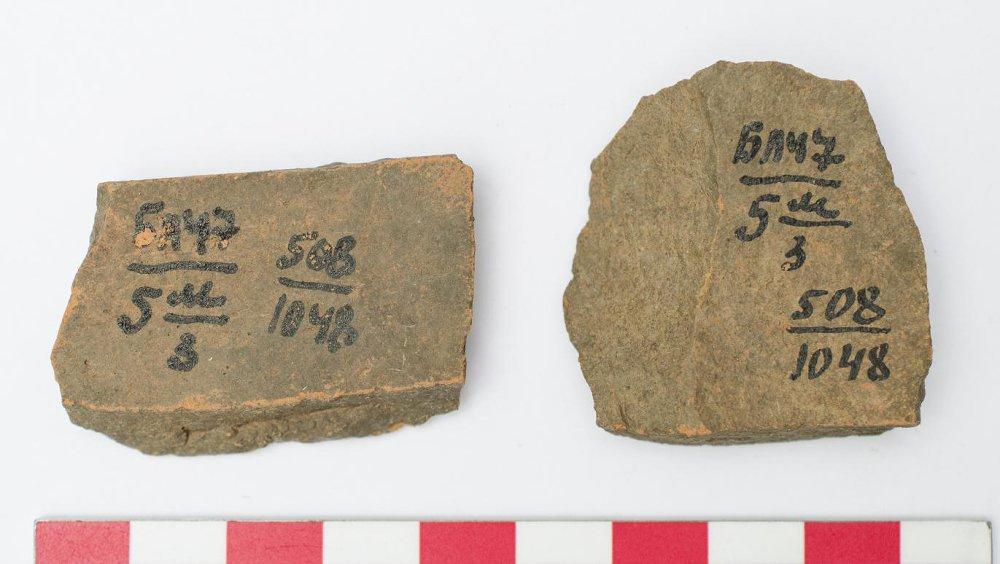 Блч7
5 м
3
508
1048
Блч7
5 м
3
508
1048